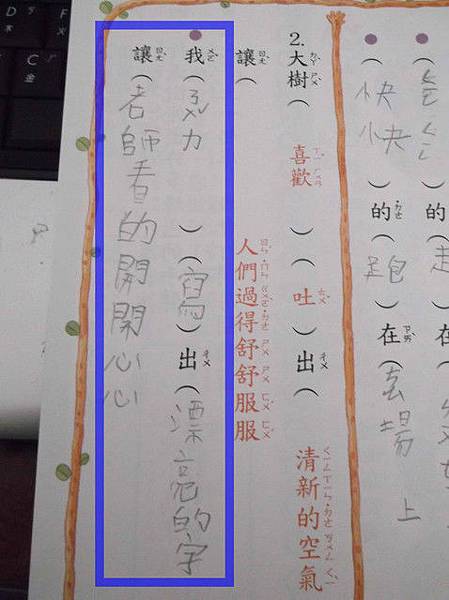 的（走 在
（快快）的（跑）在（ 場上
2.大樹（喜歡）（吐）出（清新的空氣
讓（人們過得舒舒服服
我（努力）（寫）出（漂亮的字
讓（老師看的開開心心